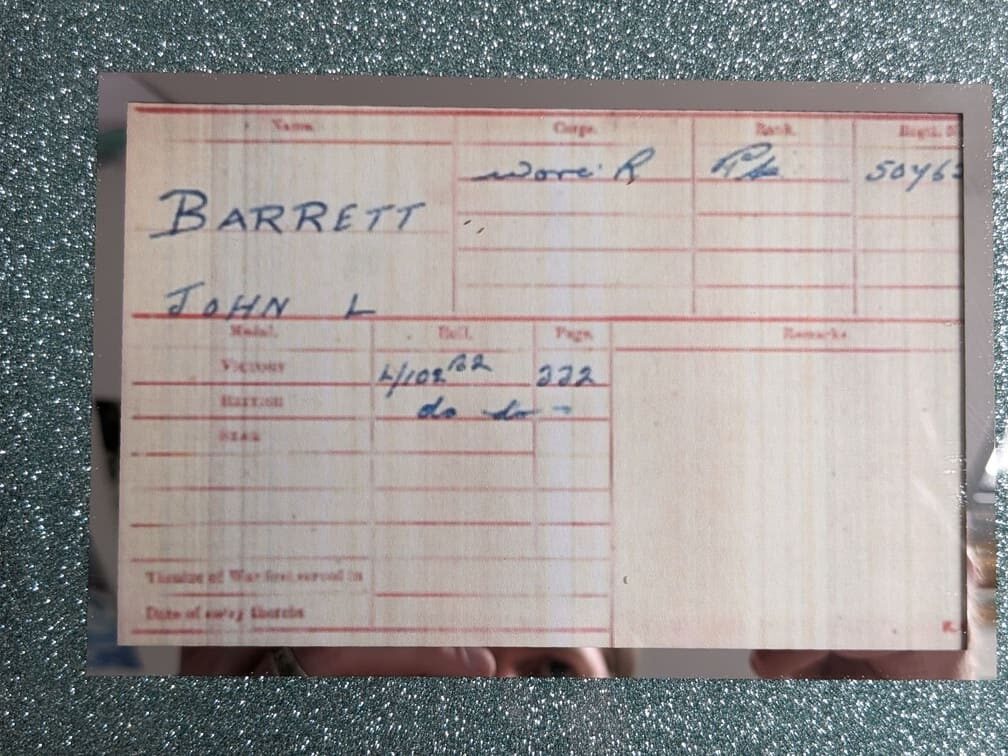 Name. Corps. Rank. Regtl. N
Worc: R Pte 5046
BARRETT
JOHN L
Medal. Roll. Page. Remarks
VICTORY L/102 B2 222
BRITISH do do -
STAR
Theatre of War first served in
Date of entry therein
K.